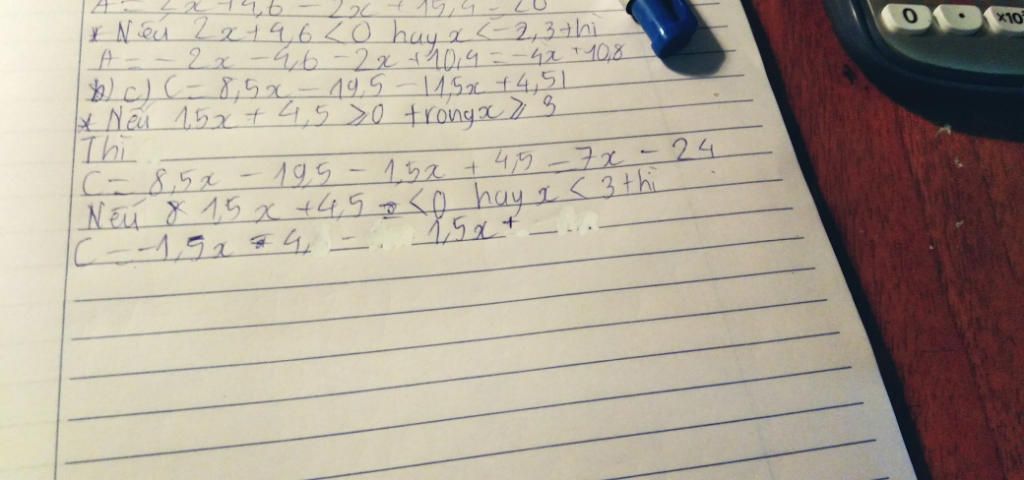 A = 2x + 4,6 - 2x + 15,4 = 20
* Nếu 2x + 4,6 < 0 hay x < -2,3 thì
A = - 2x - 4,6 - 2x + 10,4 = -4x + 10,8
b) c) C = 8,5x - 19,5 - |1,5x + 4,5|
* Nếu 1,5x + 4,5 ⩾ 0 trong x ⩾ 3
Thì
C = 8,5x - 19,5 - 1,5x + 4,5 = 7x - 24
Nếu 1,5x + 4,5 < 0 hay x < 3 thì
C = -1,5x 4, - 1,5x +
0 · ×10